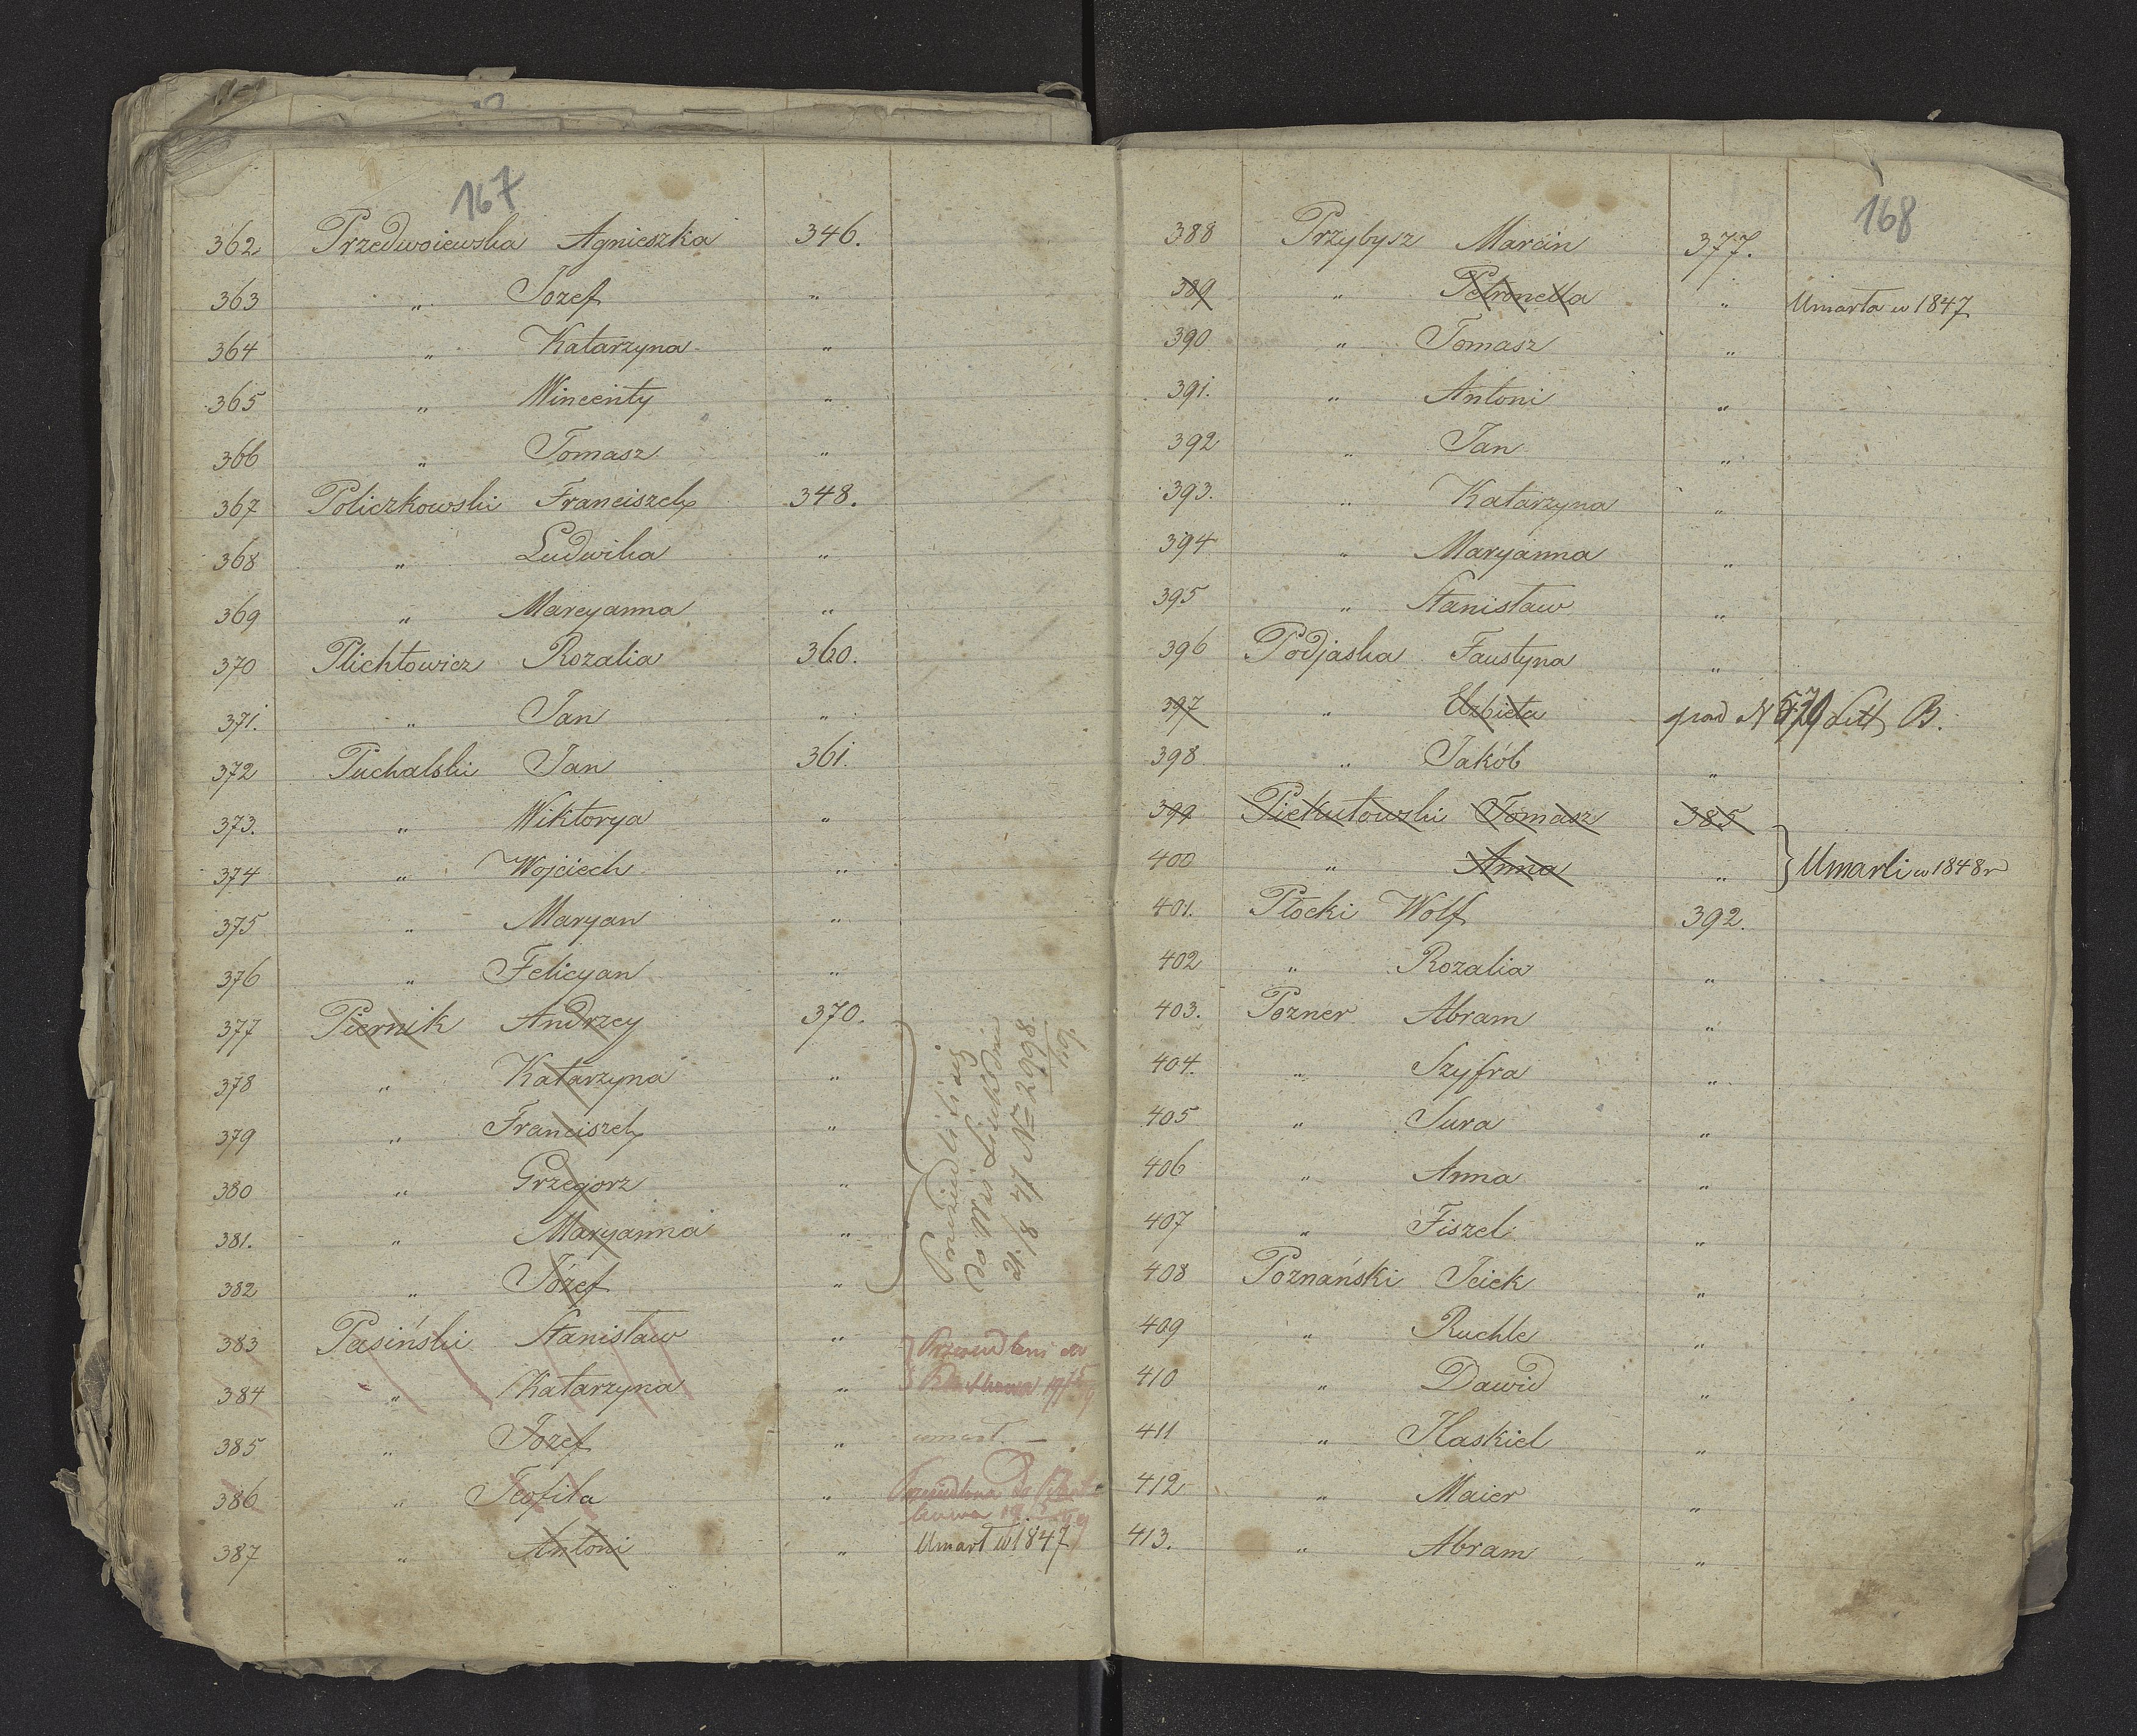 167
362. Przedwoiewska Agnieszka 346.
363 " Jozef "
364 " Katarzyna "
365 " Wincenty "
366 " Tomasz "
367 Policzkowski Franciszek 348.
368 " Ludwika "
369 " Maryanna "
370 Plichtowicz Rozalia 360.
371. " Jan "
372 Puchalski Jan 361.
373. " Wiktorya "
374 " Wojciech "
375 " Maryan "
376 " Felicyan "
377 Piernik Andrzey 370.
378 " Katarzyna "
379 " Franciszek "
380 " Grzegorz "
381. " Maryanna "
382 " Józef "
do Wsi
21/8 47 No 2998
383 Pasiński Stanisław "
384 " Katarzyna "
385 " Józef " umarł —
386 " Teofila "
387 " Antoni " Umarł w 1847
168
388 Przybysz Marcin 377.
389 " Petronella " Umarła w 1847
390 " Tomasz "
391. " Antoni "
392 " Jan "
393. " Katarzyna "
394 " Maryanna "
395 " Stanisław "
396 Podjaska Faustyna "
397 " Elzbieta pod N Litt B.
398 " Jakób "
399 Piekutowski Tomasz 385
400 " Anna " } Umarli w 1848 r
401. Płocki Wolf 392.
402 " Rozalia "
403. Pozner Abram "
404. " Szyfra "
405 " Sura "
406 " Anna "
407 " Fiszel "
408 Poznański Icick "
409 " Ruchle "
410 " Dawid "
411 " Haskiel "
412 " Maier "
413. " Abram "